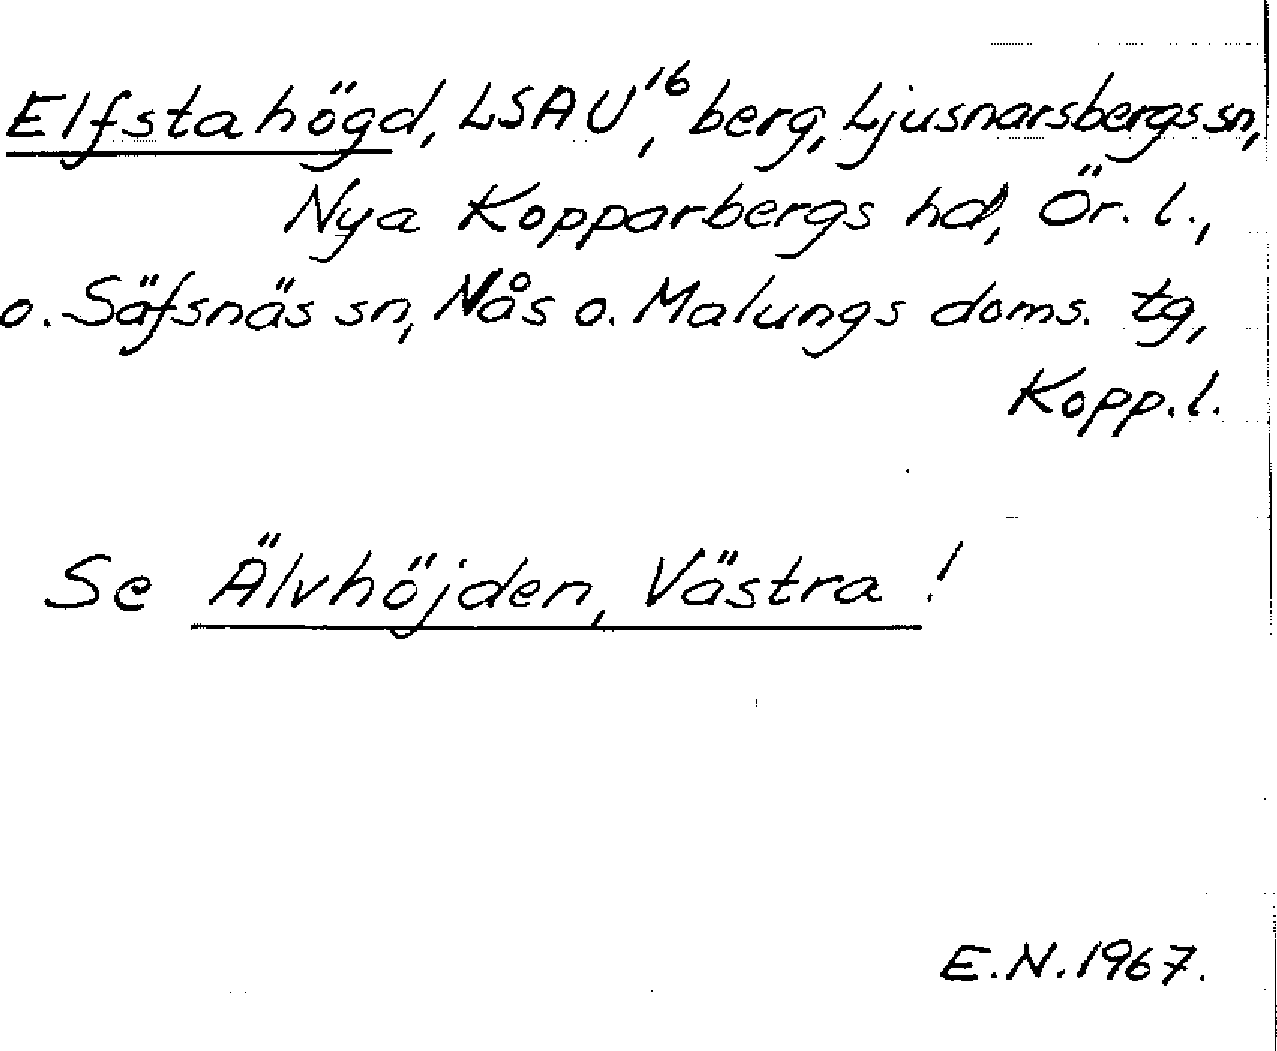 Elfstahögd, LSA U¹⁶, berg, Ljusnarsbergs sn,
Nya Kopparbergs hd, Ör. l.,
o. Säfsnäs sn, Nås o. Malungs doms. tg,
Kopp. l.
Se Älvhöjden, Västra !
E.N. 1967.